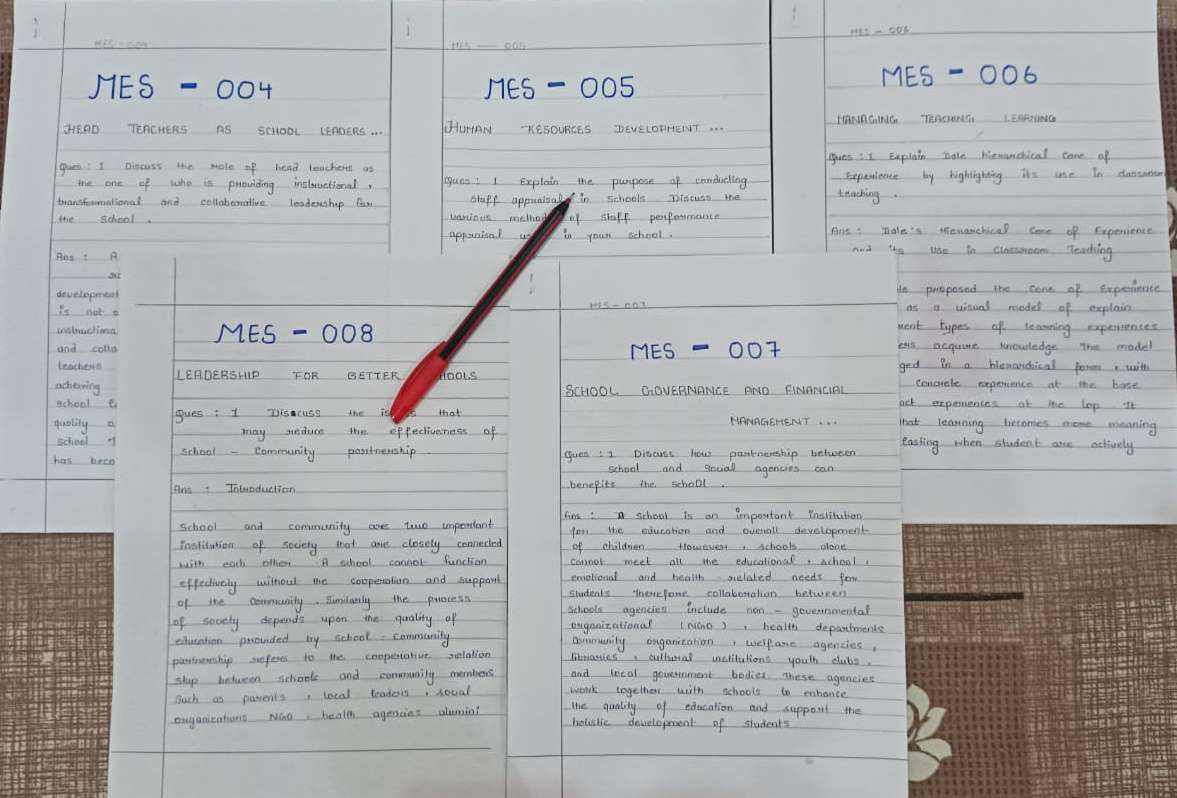 MES - 004
MES - 004
HEAD TEACHERS AS SCHOOL LEADERS ...
Ques : 1 Discuss the role of head teachers as
the one of who is providing instructional ,
transformational and collaborative leadership for
the school .
Ans : A
development
is not a
instructiona
and colla
teachers
acheving
school
quality a
school
has beco
MES - 005
MES - 005
HUMAN RESOURCES DEVELOPMENT ...
Ques : 1 Explain the purpose of conducting
staff appraisal in schools Discuss the
various method of staff performance
appraisal in your school .
MES - 006
MES - 006
MANAGING TEACHING LEARNING
Ques : 1 Explain Dale hierarchical cone of
Experience by highlighting its use in classroom
teaching .
Ans : Dale's Hierarchical Cone of Experience
and its use in Classroom Teaching
le proposed the Cone of Experience
as a visual model of explain
rent types of learning experiences
ers acquire knowledge The model
ged in a hierarchical form , with
Concrete experience at the base
act experiences at the top . It
that learning becomes more meaning
lasting when student are actively
MES - 008
LEADERSHIP FOR BETTER HOOLS
Ques : 1 Disscuss the is s that
may reduce the effectiveness of
school - Community partnership
Ans : Introduction
School and community are two important
institution of society that are closely connected
with each other . A school cannot function
effectively without the cooperation and support
of the Community . Similarly the process
of society depends upon the quality of
education provided by school - Community
partnership refers to the cooperative relation
ship between schools and community members
Such as parents , local leaders , social
organizations NGO , health agencies alumini
MES - 007
MES - 007
SCHOOL GOVERNANCE AND FINANCIAL
MANAGEMENT ...
Ques : 1 Discuss how partnership between
school and social agencies can
benefits the schoOl .
Ans : A school is an important institution
for the education and overall development
of children However , schools alone
cannot meet all the educational , school ,
emotional and health related needs for
students Therefore collaboration between
Schools agencies include non - governmental
organizational ( NGO ) , health departments
Community organization , welfare agencies ,
libraries , cultural institutions youth clubs ,
and local government bodies . These agencies
work together with schools to enhance
the quality of education and support the
holistic development of students